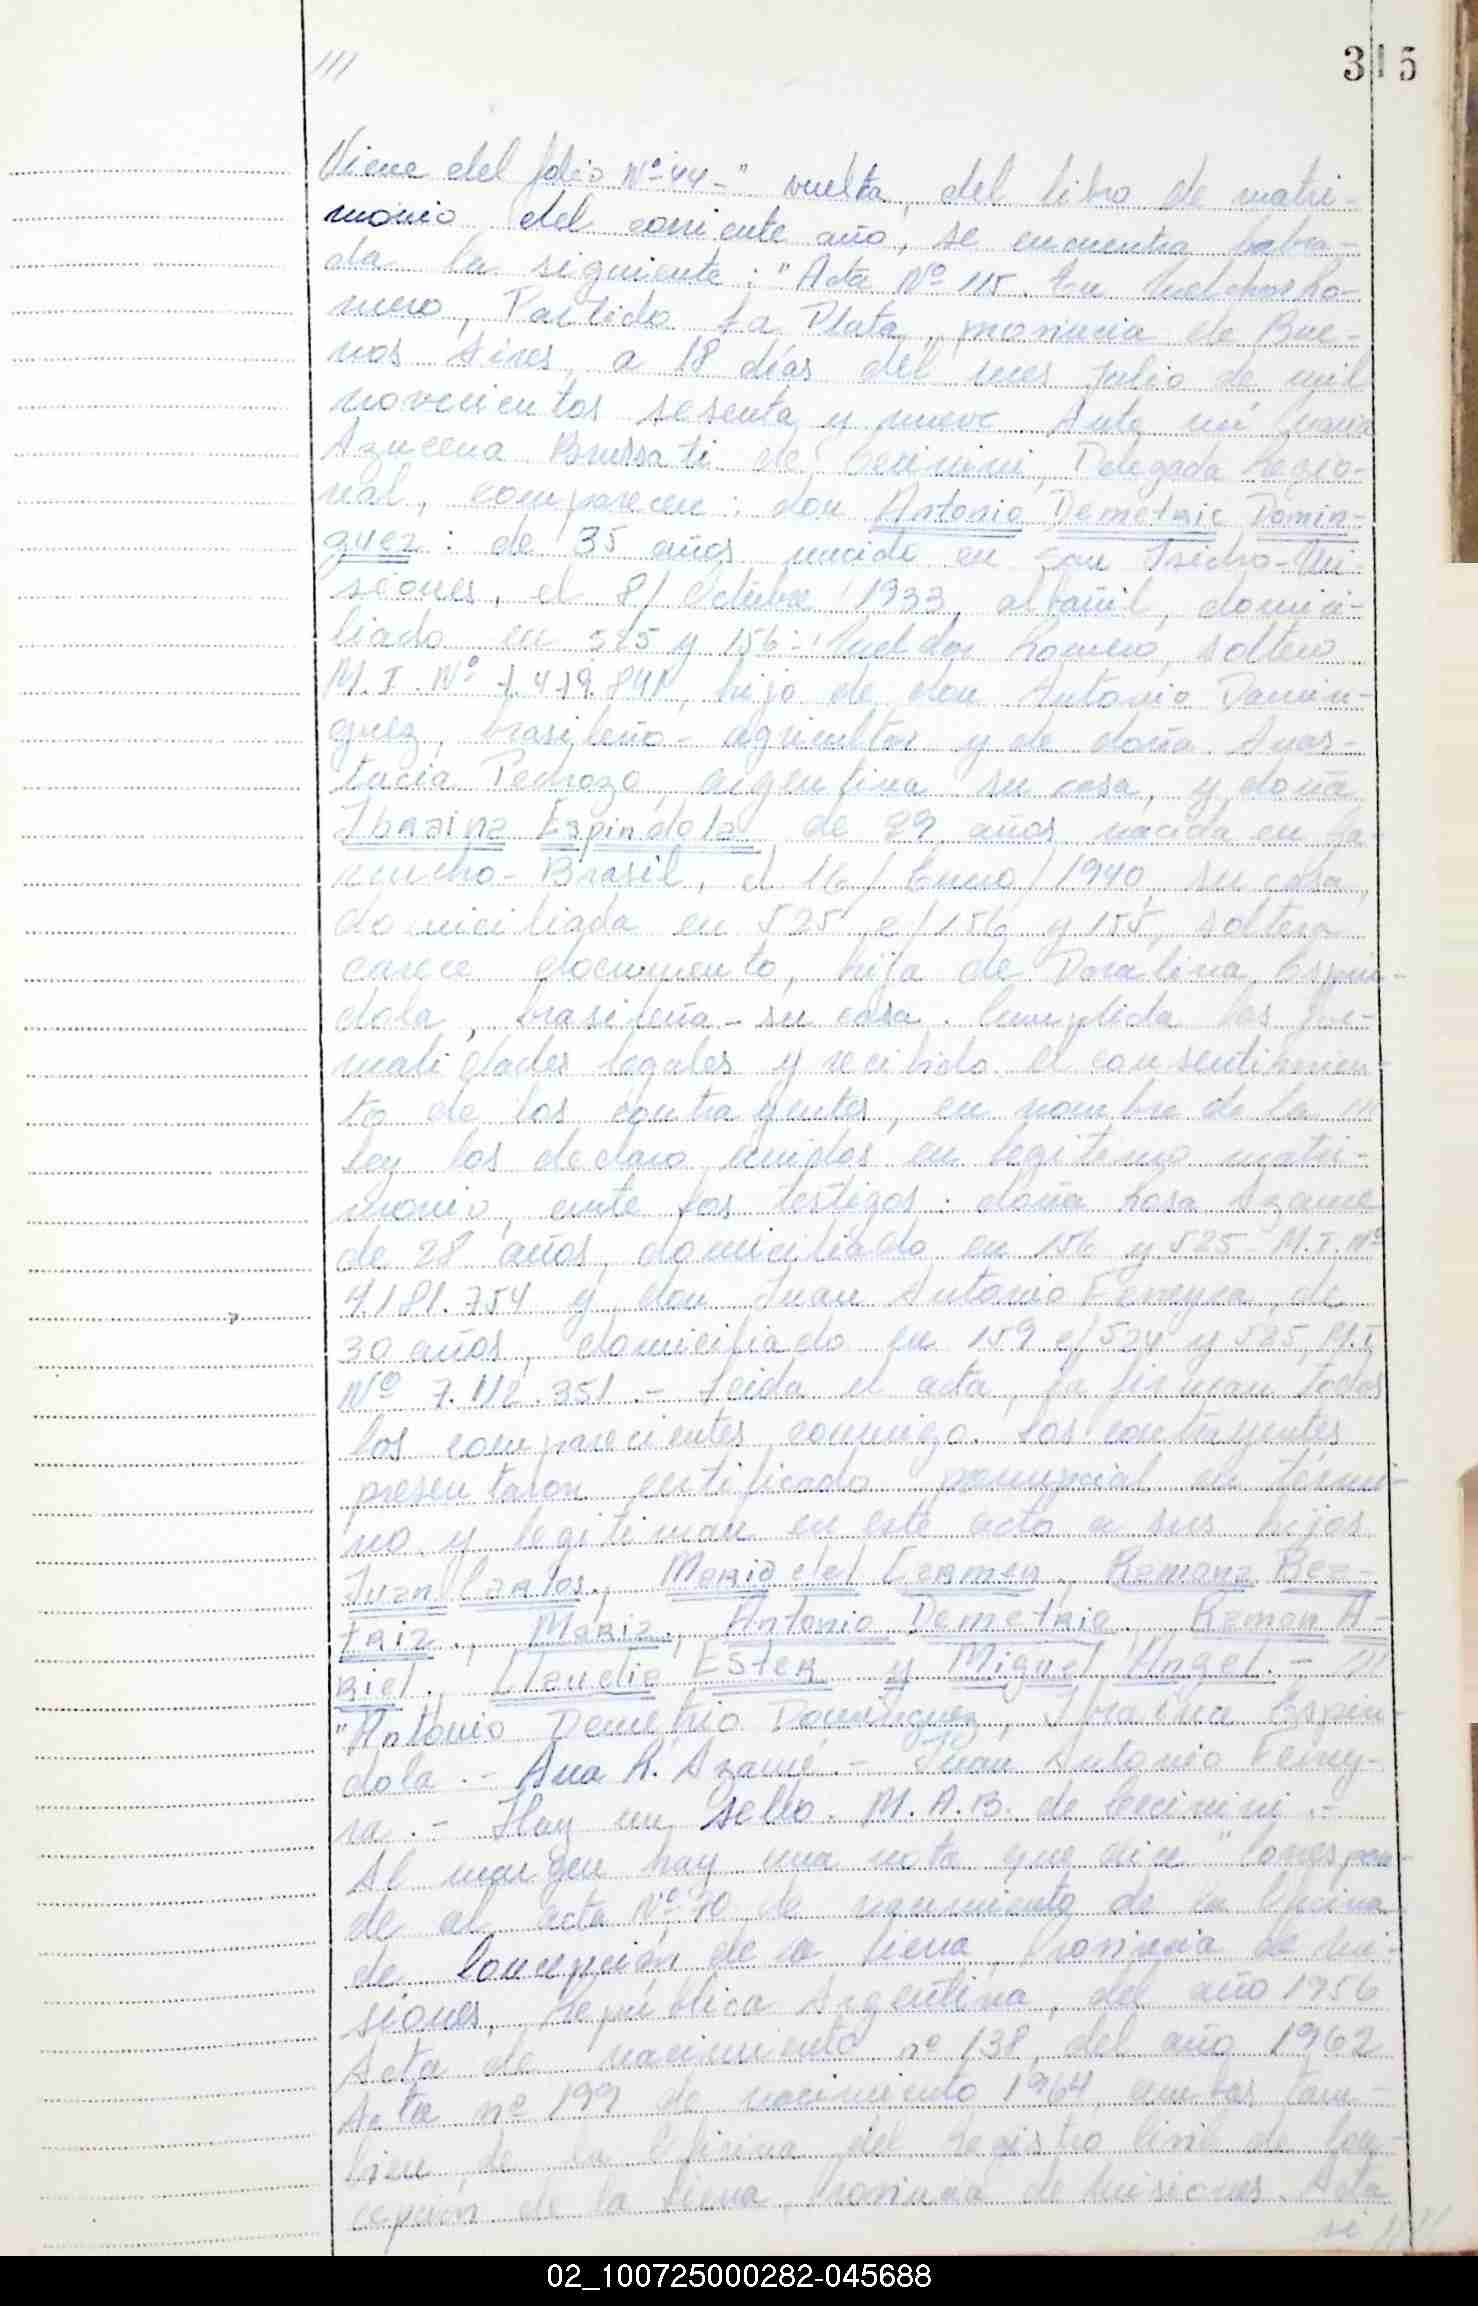 ///
315
Viene del folio Nº 44-" vuelta, del libro de matri-
monio del corriente año, se encuentra labra-
da la siguiente: "Acta Nº 115. En Melchor Ro-
mero, Partido La Plata, provincia de Bue-
nos Aires, a 18 días del mes Julio de mil
novecientos sesenta y nueve. Ante mí María
Azucena Brussati de Cecimini, Delegada Regio-
nal, comparecen: don Antonio Demetrio Domin-
guez: de 35 años nacido en San Isidro-Mi-
siones, el 8/Octubre/1933, albañil, domici-
liado en 525 y 156-Melchor Romero, soltero
M.I. Nº hijo de don Antonio Domin-
guez, brasileño-agricultor y de doña Anas-
tacia Pedrozo, argentina su casa, y doña
Ibraina Espindola, de 29 años nacida en
Brasil, el 16/Enero/1940, su casa,
domiciliada en 525 e/156 y 155, soltera
carece documento, hija de Doralina Espin-
dola, brasileña-su casa. Cumplida las for-
malidades legales y recibido el consentimien-
to de los contrayentes, en nombre de la ///
ley los declaro unidos en legitimo matri-
monio, ante los testigos: doña Rosa Azame
de 28 años, domiciliado en 156 y 525-M.I. Nº
4.181.754 y don Juan Antonio Ferreyra, de
30 años, domiciliado en 159 e/524 y 525, M.I.
Nº 7.112.351.- Leida el acta, la firman todos
los comparecientes conmigo. Los contrayentes
presentaron certificado prenupcial en térmi-
no y legitiman en este acto a sus hijos
Juan Carlos, Maria del Carmen, Ramona Bea-
triz., Maria., Antonio Demetrio., Ramon A-
riel., Claudia Ester y Miguel Angel.- ///
"Antonio Demetrio Dominguez, Ibraina Espin-
dola.- Ana R. Azame.- Juan Antonio Ferrey-
ra.- Hay un sello. M.A.B. de Cecimini.-
Al margen hay una nota que dice "Correspon-
de al acta Nº 70 de nacimiento de la Oficina
de Concepción de la Sierra, Provincia de Mi-
siones, República Argentina, del año 1956
Acta de nacimiento nº 138, del año 1962
Acta nº 199 de nacimiento 1964, ambas tam-
bien de la Oficina del Registro Civil de Con-
cepción de la Sierra, Provincia de Misiones. Acta
02_100725000282-045688